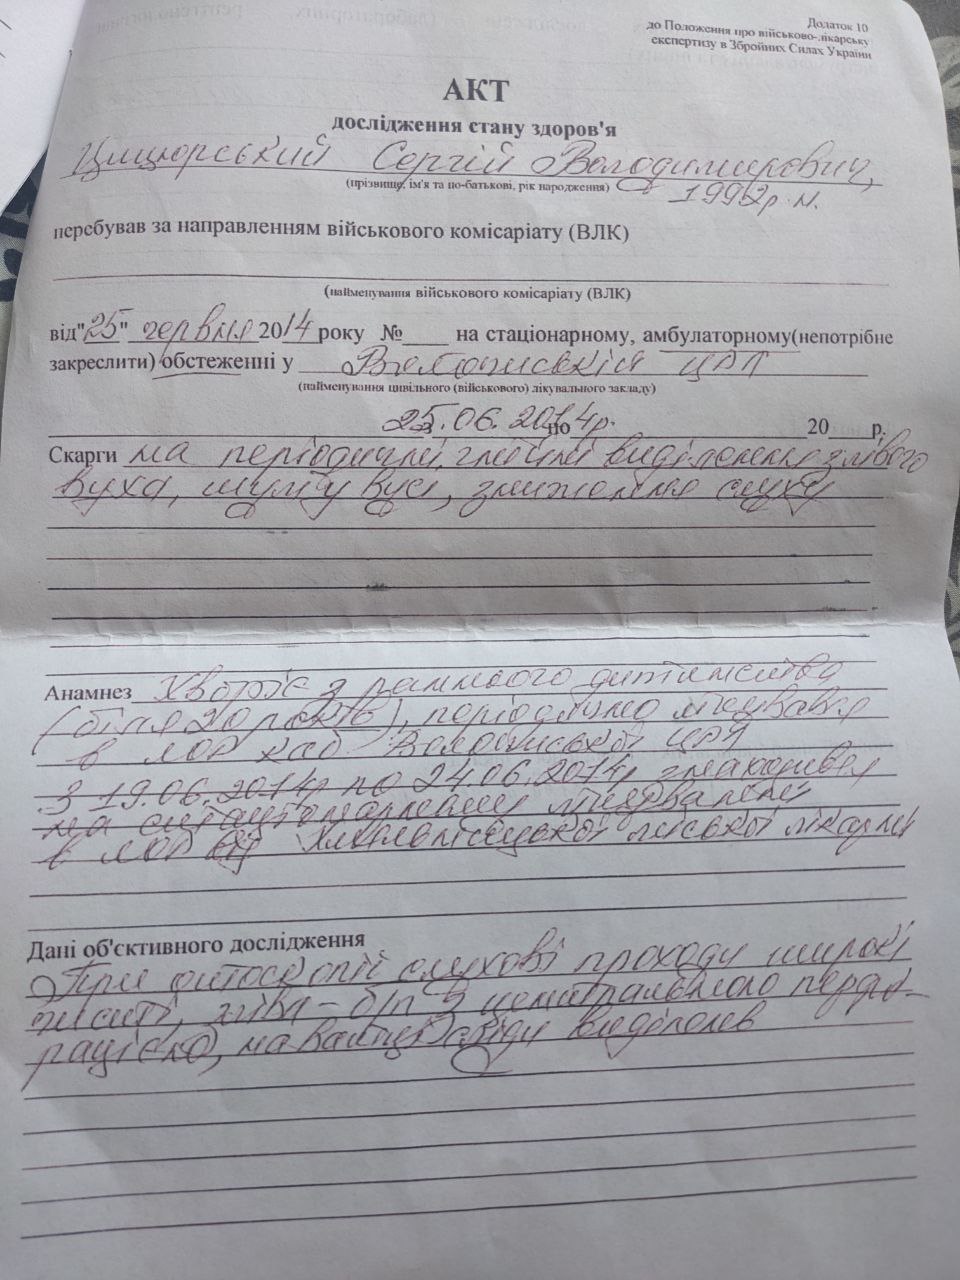 Додаток 10
до Положення про військово-лікарську
експертизу в Збройних Силах України
АКТ
дослідження стану здоров'я
Сергій Володимирович,
(прізвище, ім'я та по-батькові, рік народження)
1992р.н.
перебував за направленням військового комісаріату (ВЛК)
(найменування військового комісаріату (ВЛК)
від "25" червня 2014 року № на стаціонарному, амбулаторному(непотрібне
закреслити) обстеженні у Волочиській ЦРЛ
(найменування цивільного (військового) лікувального закладу)
25.06.2014р. по 20 р.
Скарги на періодичні гнійні виділення з лівого
вуха, шум у вусі, зниження слуху
Анамнез Хворіє з раннього дитинства
(біля 20 років), періодично лікувався
в ЛОР каб. Волочиської ЦРЛ
З 19.06.2014р по 24.06.2014р знаходився
на стаціонарному лікуванні
в ЛОР від Хмельницької міської лікарні
Дані об'єктивного дослідження
При отоскопії слухові проходи широкі
чисті, ліва - б/п з центральною перфо-
рацією, сліди виділень